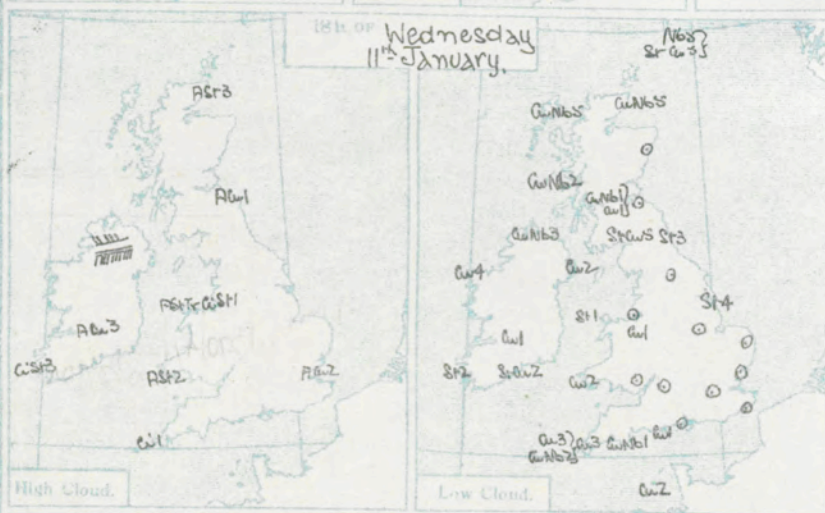 18h OF
Wednesday
11th January.
ASt3
ACu1
ACu3
CiSt1
CiSt3
ASt2
ACu2
Ci1
High Cloud.
Nb5
StCu3
CuNb5
CuNb5
CuNb2
CuNb1
Cu1
CuNb3
StCu5 St3
Cu4
Cu2
St4
St1
Cu1
Cu1
St2
StCu2
Cu2
Cu3
Cu3
CuNb1
Cu1
CuNb2
Cu2
Low Cloud.